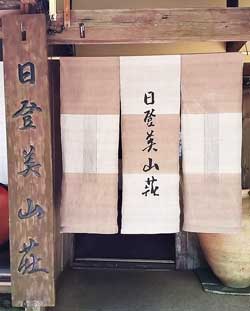 日登美山荘
日登美山荘